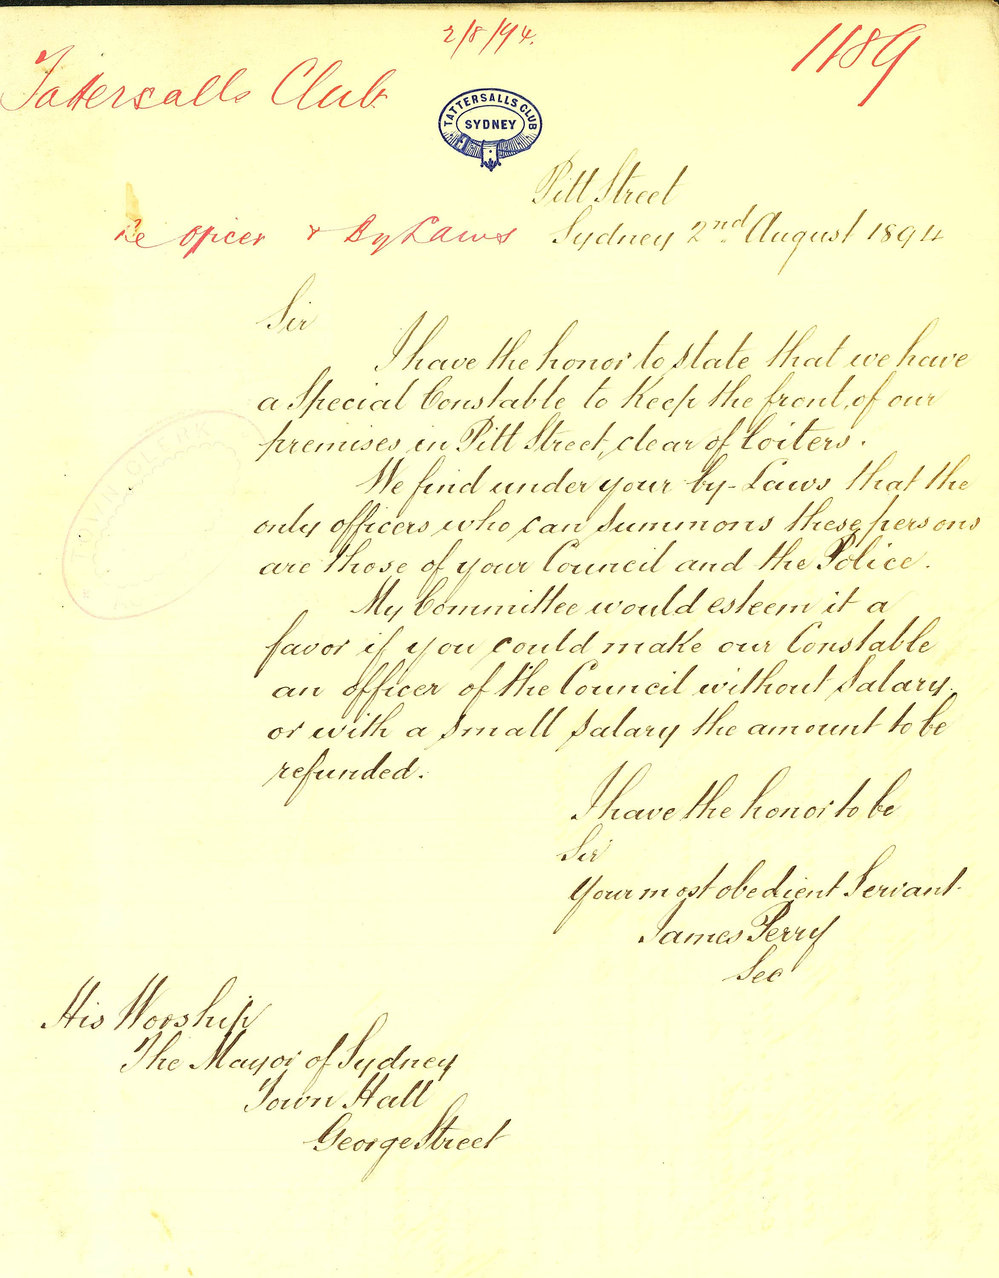 2/8/94.
1189
Tattersalls Club
TATTERSALLS CLUB
SYDNEY
Pitt Street
Re officer & By Laws
Sydney 2nd August 1894
Sir
I have the honor to state that we have
a Special Constable to Keep the front, of our
premises in Pitt Street, clear of Loiters.
We find under your by-Laws that the
only officers who can summons these persons
are those of your Council and the Police.
My Committee would esteem it a
favor if you could make our Constable
an officer of the Council without salary.
or with a small salary the amount to be
refunded.
TOWN CLERK
I have the honor to be
Sir
Your most obedient Servant
James Perry
Sec
His Worship
The Mayor of Sydney
Town Hall
George Street